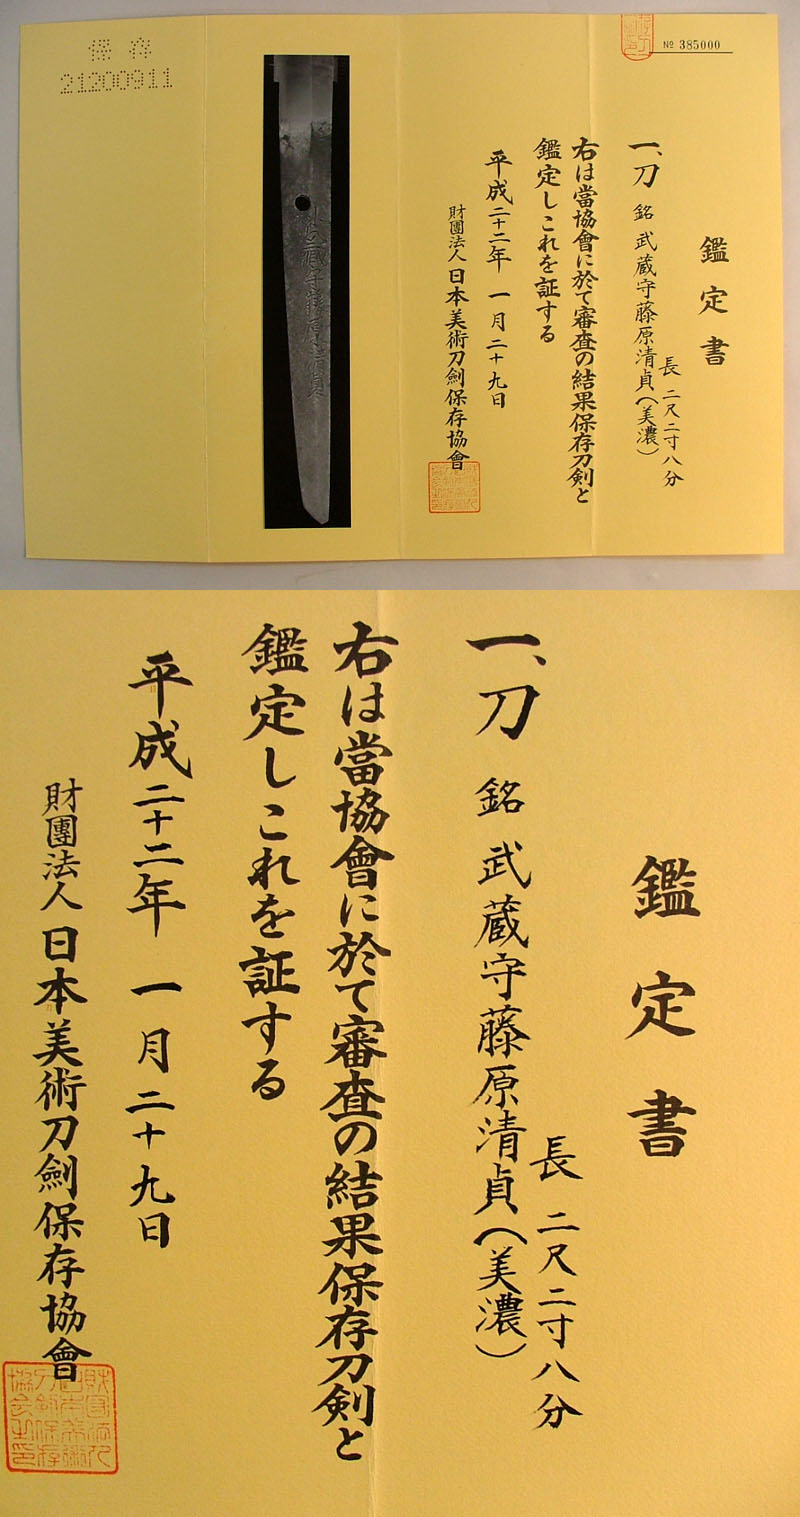 № 385000
鑑定書
一、刀 銘 武蔵守藤原清貞（美濃）
長 二尺二寸八分
右は當協會に於て審査の結果保存刀剣と
鑑定しこれを証する
平成二十二年 一月二十九日
財團法人 日本美術刀劍保存協會
武蔵守藤原清貞
保存
21200911
鑑定書
一、刀 銘 武蔵守藤原清貞（美濃）
長 二尺二寸八分
右は當協會に於て審査の結果保存刀剣と
鑑定しこれを証する
平成二十二年 一月二十九日
財團法人 日本美術刀劍保存協會